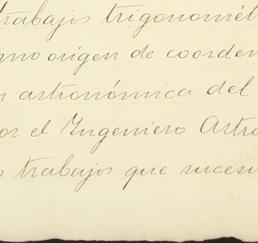 trabajos trigonomét
mo origen de coorden
n astronómica del
or el Ingeniero Astro
s trabajos que sucesi